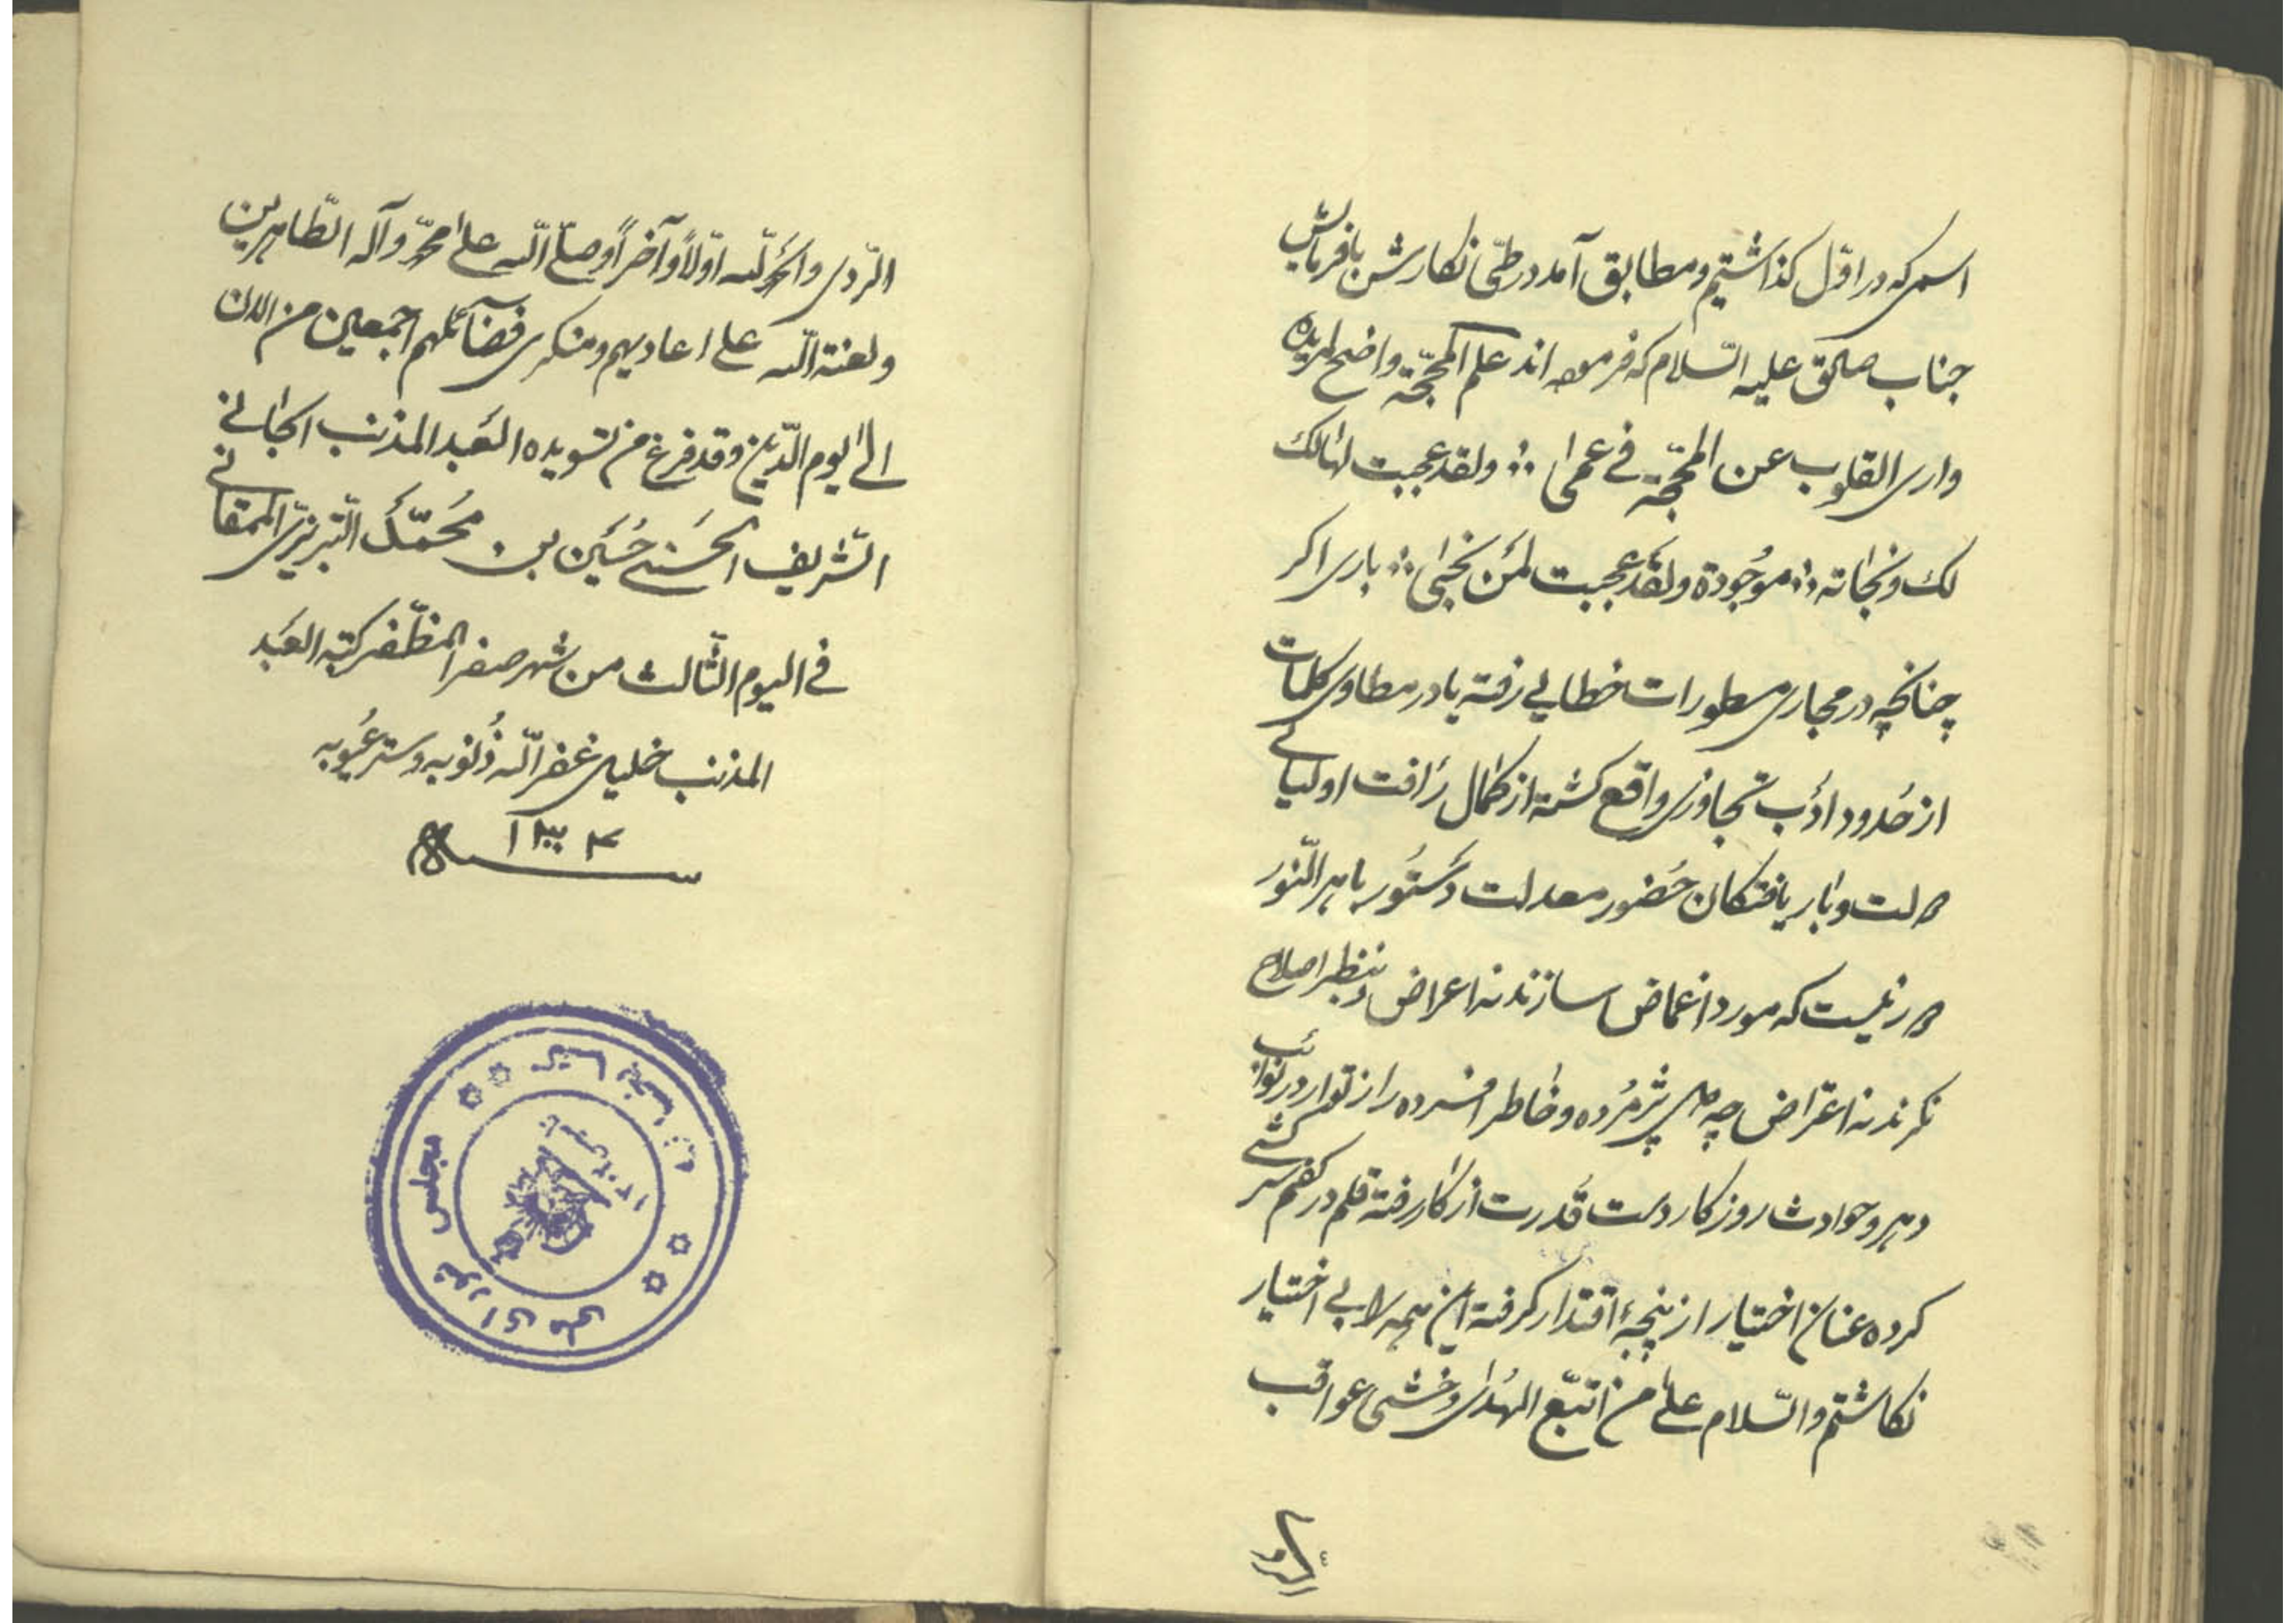 اسمی که در اوّل گذاشتیم و مطابق آمد در طیّ نگارش با فرمایش
جناب صادق علیه السّلام که فرموده اند علم المحجّة واضح لمریده
واری القلوب عن المحجّة فی عمی ∴ ولقد عجبت لهالک
لک ونجاته ∴ موجُودة ولقَد عجبت لمَن نجیٰ ∴ باری اکر
چنانچه در مجاری سطورات خطایی رفته یا در مطاوی کلمات
از حُدود ادَب تجاوزی واقع کشته از کمال رَافت اولیای
دولت و بار یافتکان حضور معدلت دَستُور باهر النّور
دور نیست که مورد اغماض سازند نه اعراض و بنظر اصلاح
نکرند نه اعتراض چه دل پژمُرده و خاطر افسرده را از توارد نوائب
دهر و حوادث روزکار دست قُدرت از کار رفته قلم در کفم سرکشی
کرده عنان اختیار از پنجهٔ اقتدار کرفته این همه را بی اختیار
نکاشتم والسّلام علیٰ من اتّبع الهُدیٰ وخشی عواقب
الرّدی
الرّدی والحمدُ للّه اوّلاً وآخراً وصلّی اللّه علیٰ محمّد وآله الطّاهرین
ولعنة اللّه علی اعادیهم ومنکری فضآئلهم اجمعین من الان
الیٰ یوم الدّین وقد فرغ من تسویده العَبد المذنب الجانی
الشّریف الحَسنی حُسَین بن محُمّد التّبریزی الممقانی
فی الیوم الثّالث من شهر صفر المظّفر کتبه العَبد
المذنب خلیل غفر اللّه ذُنُوبه وستر عُیُوبه
سنه ۱۳۰۴
مجلس شورای ملی